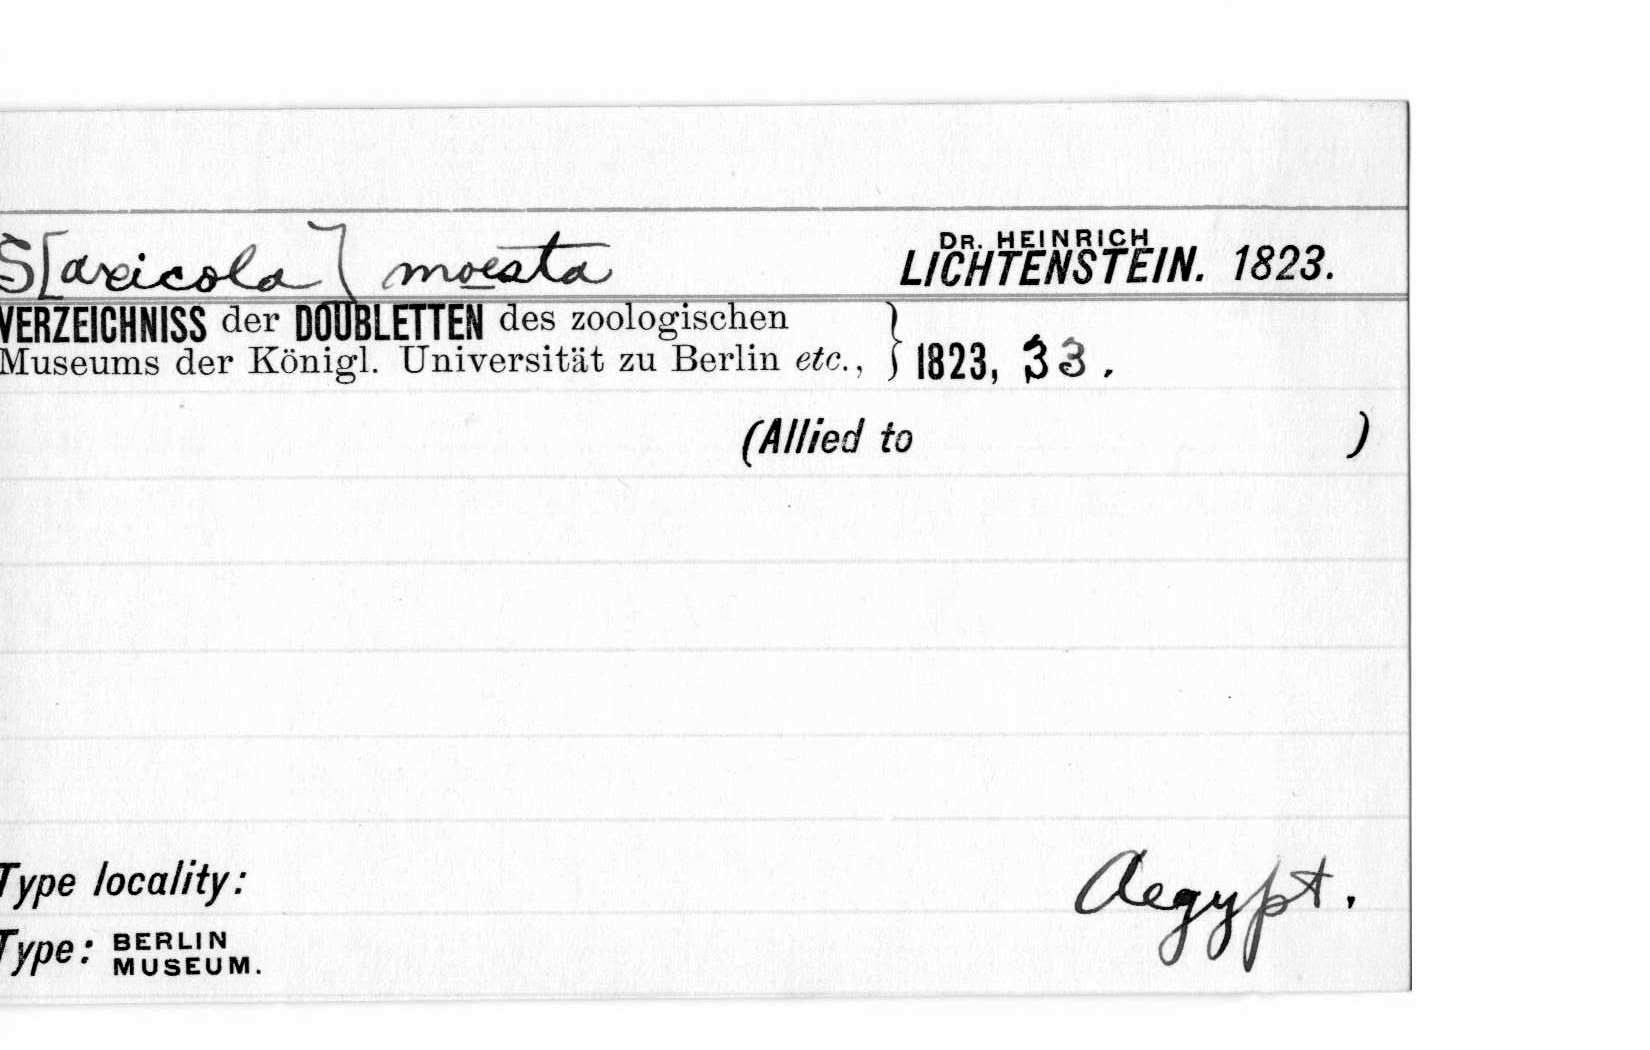 S[axicola] moesta
DR. HEINRICH
LICHTENSTEIN. 1823.
VERZEICHNISS der DOUBLETTEN des zoologischen
Museums der Königl. Universität zu Berlin etc., } 1823, 33.
(Allied to )
Type locality: Aegypt.
Type: BERLIN
MUSEUM.